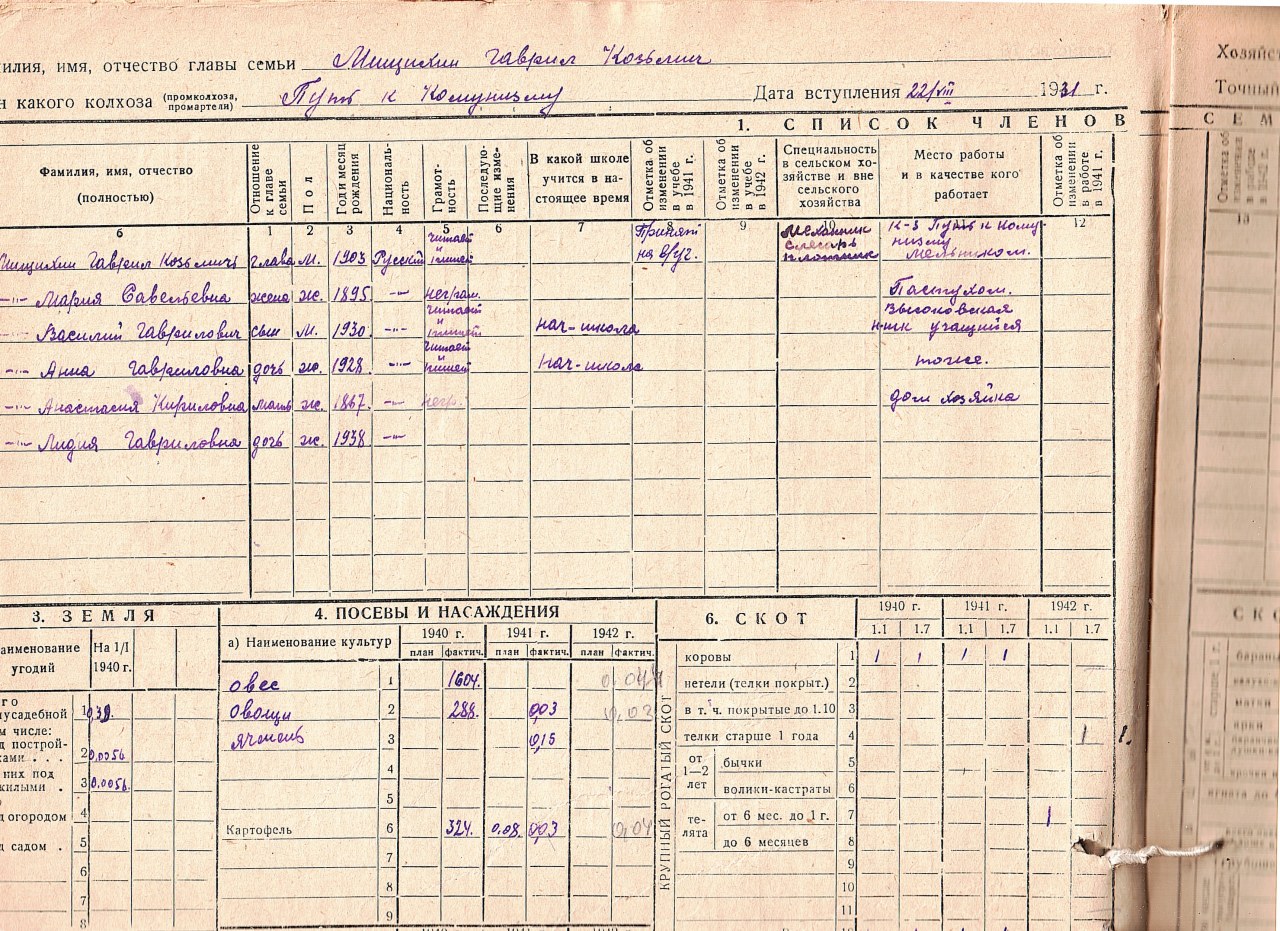 илия, имя, отчество главы семьи Мищихин Гаврил Козьмич
н какого колхоза (промколхоза, промартели) Путь к Комунизму Дата вступления 22/VIII 1931 г.
1. СПИСОК ЧЛЕНОВ
Фамилия, имя, отчество (полностью) Отношение к главе семьи Пол Год и месяц рождения Националь-ность Грамот-ность Последую-щие изме-нения В какой школе учится в на-стоящее время Отметка об изменении в учебе в 1941 г. Отметка об изменении в учебе в 1942 г. Специальность в сельском хо-зяйстве и вне сельского хозяйства Место работы и в качестве кого работает Отметка об изменении в работе в 1941 г.
б 1 2 3 4 5 6 7 8 9 10 11 12
Мищихин Гаврил Козьмичъ глава м. 1903 Русский читает и пишет Принят на в/уч. Механик слесарь плотник К-з Путь к Кому-низму мельником.
-"- Мария Савельевна жена ж. 1895 -"- неграм. Пастухом.
-"- Василий Гаврилович сын м. 1930 -"- читает и пишет нач-школа Высоковская нш учащийся
-"- Анна Гавриловна дочь ж. 1928 -"- читает и пишет нач-школа тоже.
-"- Анастасия Кириловна мать ж. 1867 -"- негр. дом хозяйка
-"- Лидия Гавриловна дочь ж. 1938 -"-
3. ЗЕМЛЯ
аименование угодий На 1/I 1940 г.
его
иусадебной 1 0,39
м числе:
д построй-ками . . . 2 0,0056
них под жилыми . 3 0.0056
д огородом 4
д садом . 5
6
7
8
4. ПОСЕВЫ И НАСАЖДЕНИЯ
а) Наименование культур 1940 г. 1941 г. 1942 г.
план фактич. план фактич. план фактич.
овес 1 1604.
овощи 2 288. 0,03 0,03
ячмень 3 0,15
4
5
Картофель 6 324. 0.08 0,03 0,04
7
8
9
6. СКОТ 1940 г. 1941 г. 1942 г.
1.1 1.7 1.1 1.7 1.1 1.7
КРУПНЫЙ РОГАТЫЙ СКОТ
коровы 1 1 1 1 1
нетели (телки покрыт.) 2
в т. ч. покрытые до 1.10 3
телки старше 1 года 4 1 1.
от 1—2 лет бычки 5
волики-кастраты 6
те-лята от 6 мес. до 1 г. 7 1
до 6 месяцев 8
9
10
11
Хозяйст
Точный
СЕМ
13
СКО